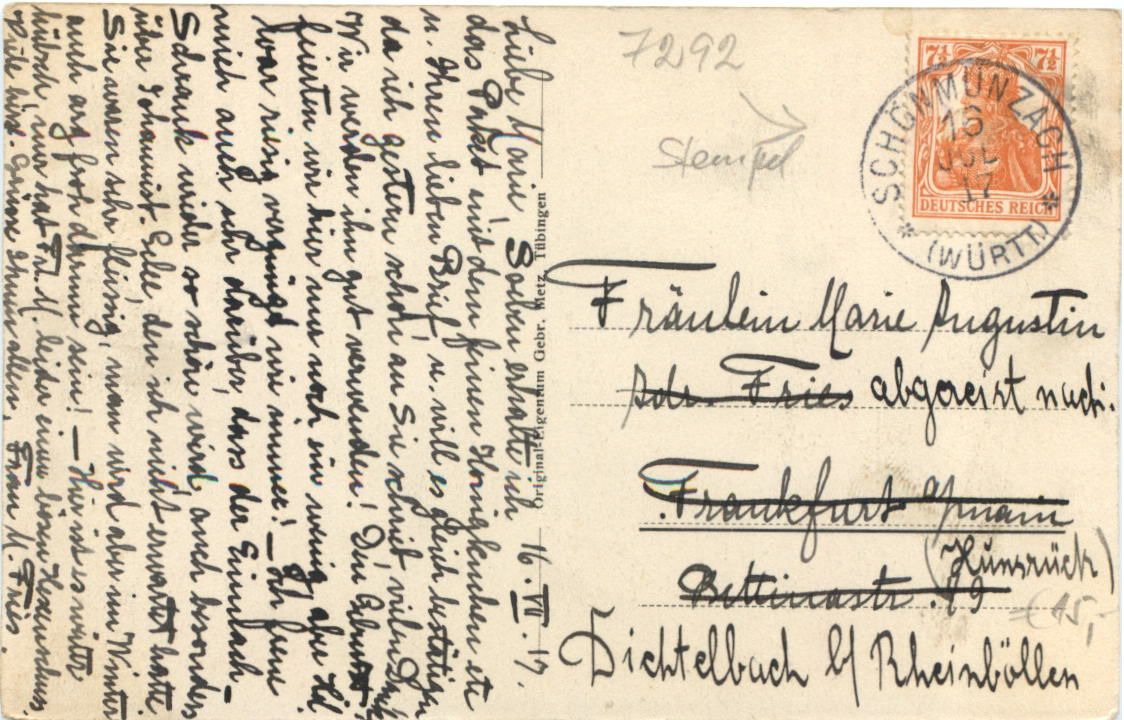 16. VII. 17.
Liebe Marie, Soeben erhalte ich
das Paket mit dem feinen Honigkuchen etc
u. Ihren lieben Brief, u. will es gleich bestätigen
da ich gestern schon an Sie schrieb, vielen Dank
Wir werden ihn gut verwenden! Den
feierten wir hier nur noch ein wenig, aber
war riesig vergnügt wie immer! — Ich freue
mich auch sehr darüber, dass der Einmach-
Schrank wieder so schön wird, auch besonders
über Johannist. Gelee den ich nicht erwartet hatte
Sie waren sehr fleissig, man wird aber im Winter
auch arg froh darum sein! — Hier ist es weiter
hübsch, nur hat Frl. M. leider einen bösen Hexenschuss.
Grüsse Ihnen allen Frau M. Fries.
Original-Eigentum Gebr. Metz, Tübingen
7292
Stempel
7½ 7½
DEUTSCHES REICH
SCHÖNMÜNZACH
16
JUL
17
* (WÜRTT) *
Fräulein Marie Augustin
Adr. Fries abgereist nach:
Frankfurt a/main
(Hunsrück)
Bettinastr. 49
15,-
Dichtelbach b/ Rheinböllen